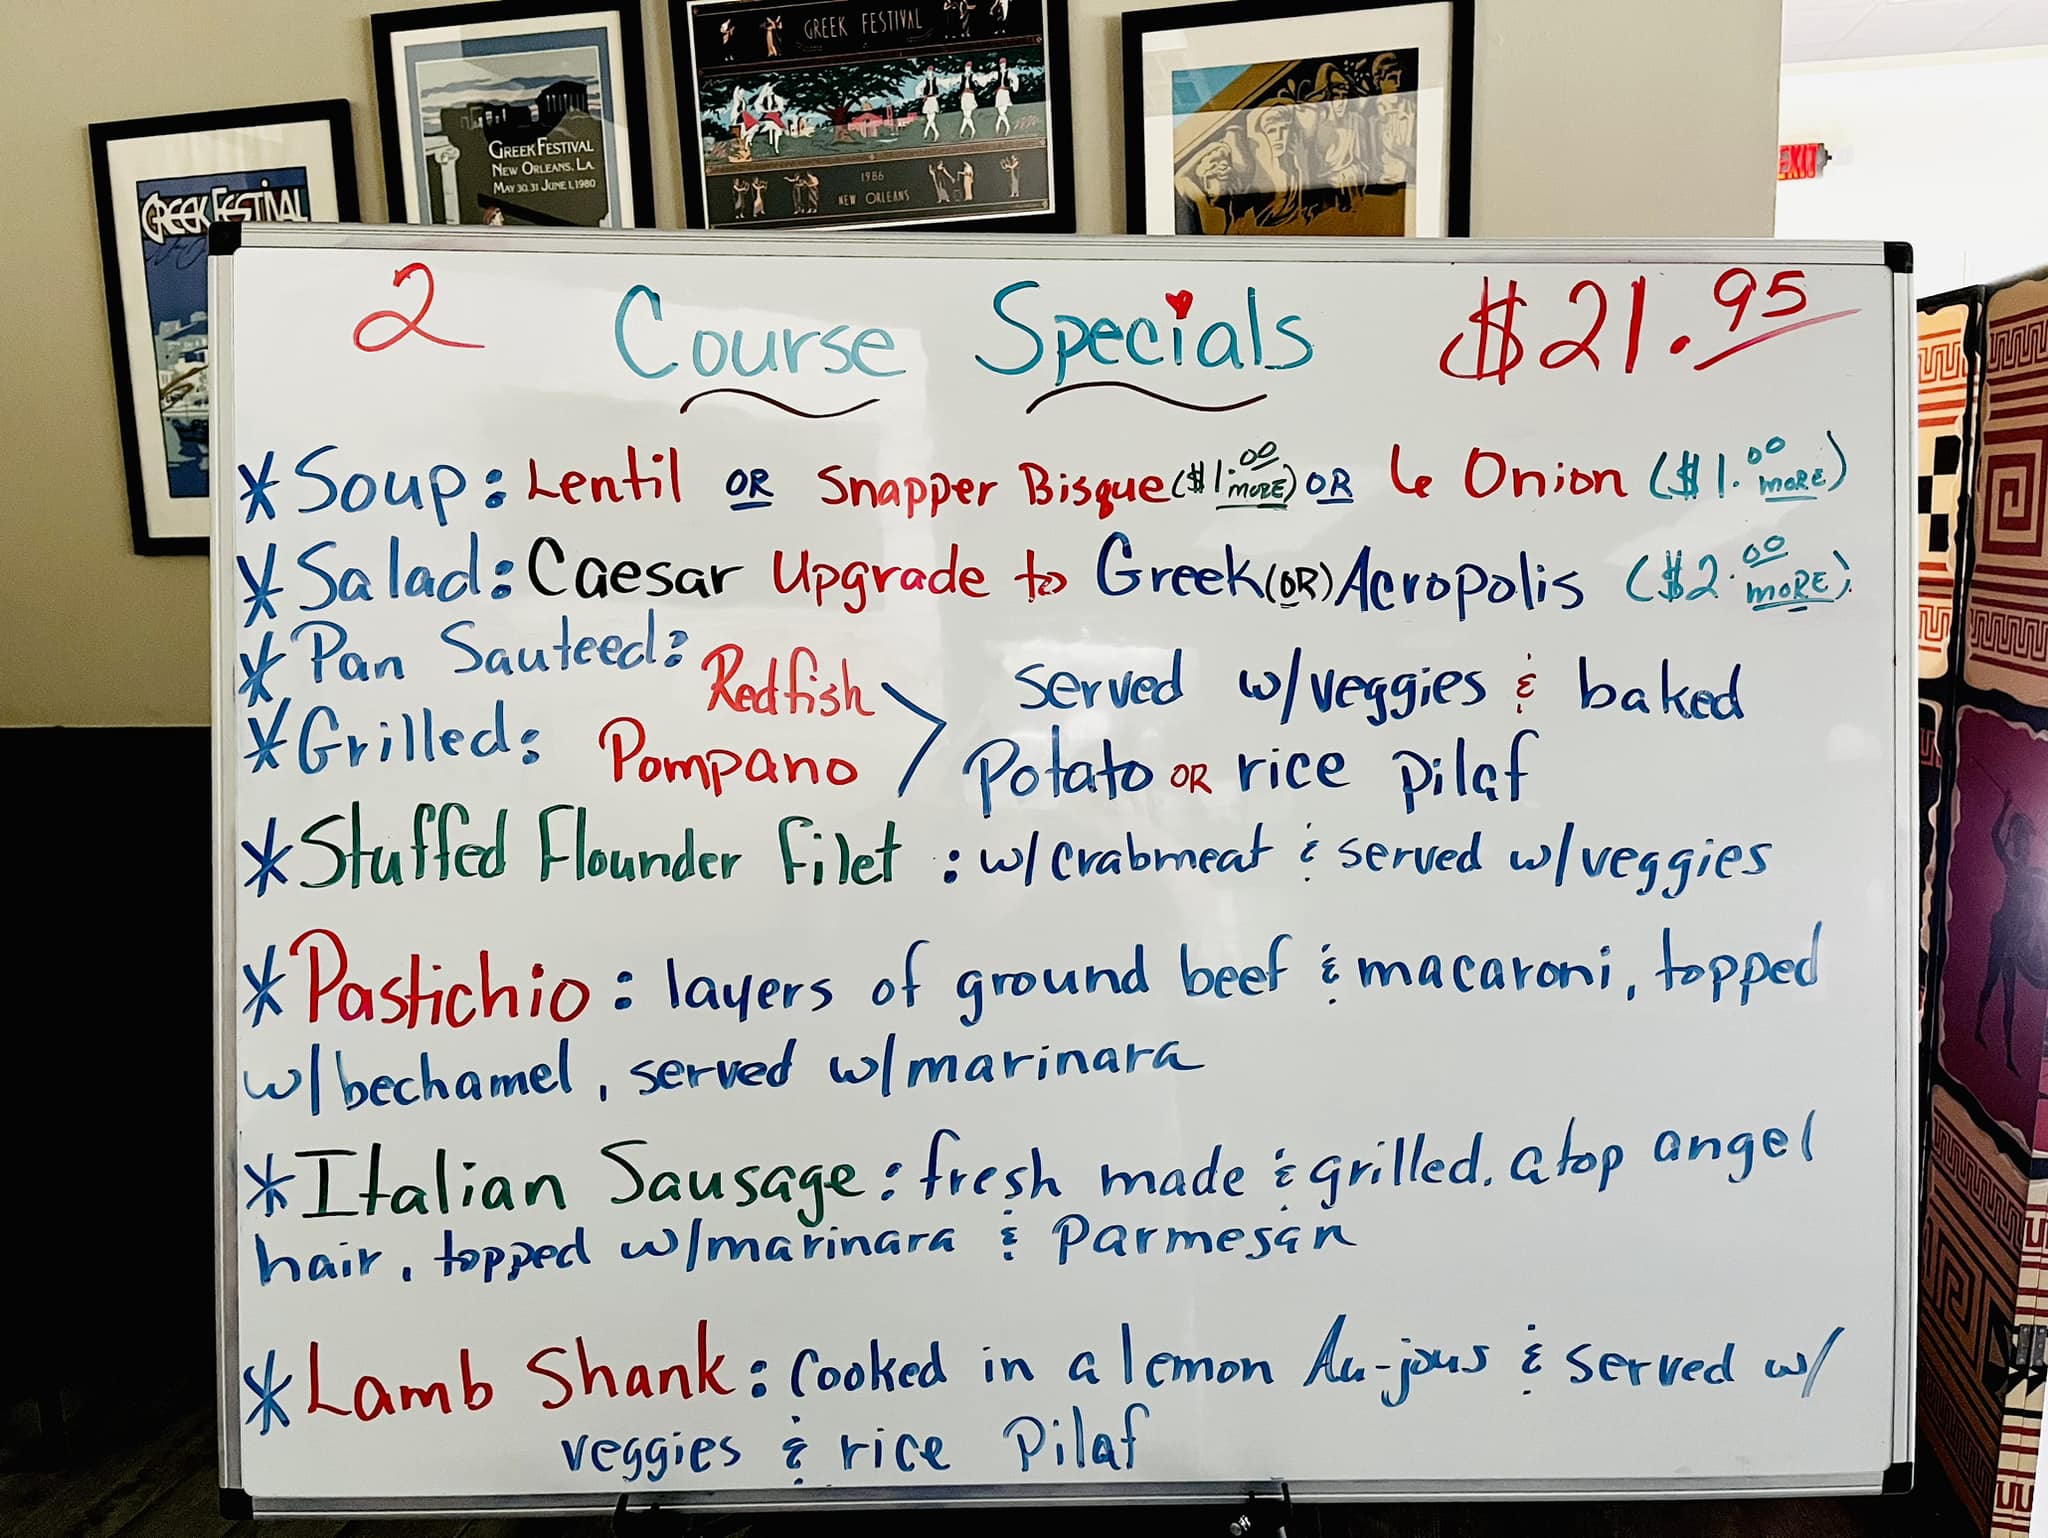 GREEK FESTIVAL
GREEK FESTIVAL
NEW ORLEANS, LA.
MAY 30, 31 JUNE 1, 1980
GREEK FESTIVAL
1986
NEW ORLEANS
EXIT
2 Course Specials $21.95
* Soup: Lentil OR Snapper Bisque ($1.00 MORE) OR 6 Onion ($1.00 MORE)
* Salad: Caesar Upgrade to Greek (OR) Acropolis ($2.00 MORE).
* Pan Sauteed: Redfish > served w/veggies & baked
* Grilled: Pompano Potato OR rice Pilaf
* Stuffed Flounder Filet : w/crabmeat & served w/veggies
* Pastichio : layers of ground beef & macaroni, topped
w/bechamel, served w/marinara
* Italian Sausage : fresh made & grilled. atop angel
hair, topped w/marinara & Parmesan
* Lamb Shank : Cooked in a lemon Au-jous & served w/
veggies & rice Pilaf